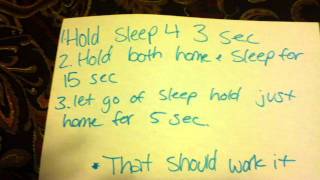 1. Hold sleep 4 3 sec
2. Hold both home & sleep for
15 sec
3. let go of sleep hold just
home for 5 sec.
* That should work it